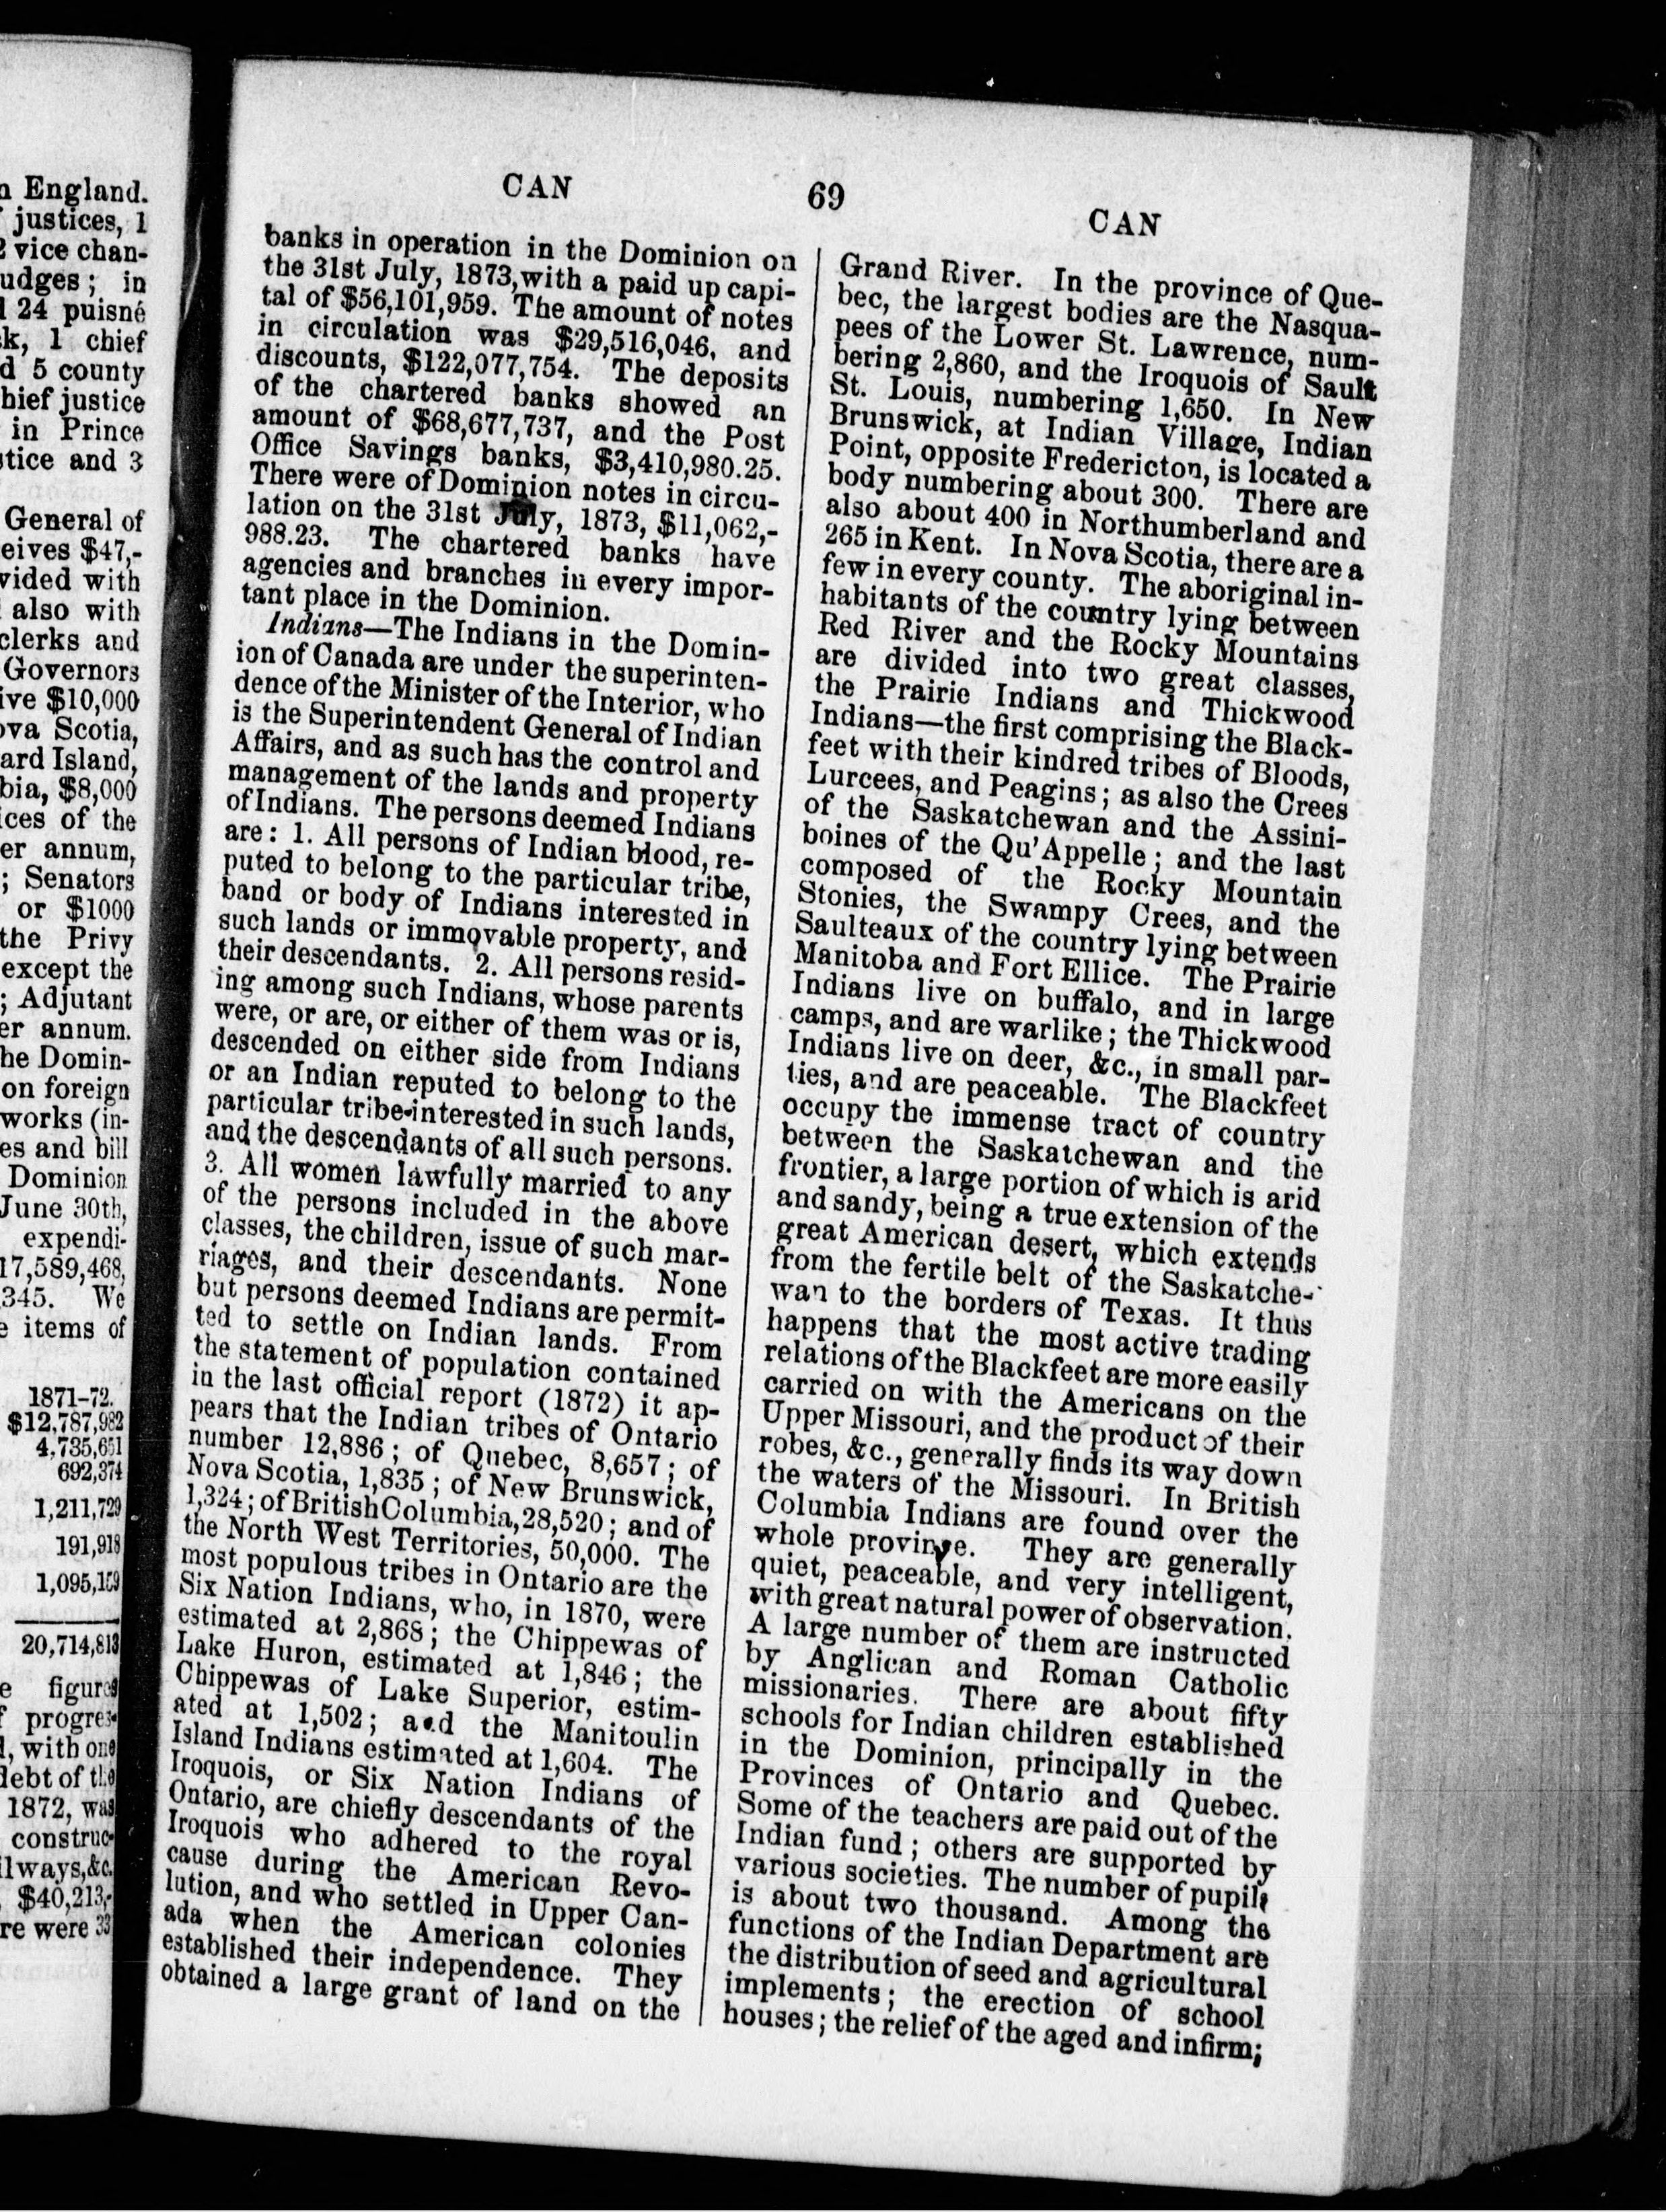 n England.
justices, 1
2 vice chan-
udges; in
24 puisné
k, 1 chief
d 5 county
hief justice
in Prince
stice and 3
General of
eives $47,-
vided with
also with
clerks and
Governors
ive $10,000
ova Scotia,
ard Island,
bia, $8,000
ices of the
er annum,
; Senators
or $1000
the Privy
except the
; Adjutant
er annum.
he Domin-
on foreign
works (in-
es and bill
Dominion
June 30th,
expendi-
17,589,468,
345. We
e items of
1871-72.
$12,787,982
4,735,651
692,374
1,211,729
191,918
1,095,159
20,714,813
e figures
f progres-
l, with one
debt of the
1872, was
construc-
ilways,&c.
$40,213,-
re were 33
CAN
69
CAN
banks in operation in the Dominion on
the 31st July, 1873,with a paid up capi-
tal of $56,101,959. The amount of notes
in circulation was $29,516,046, and
discounts, $122,077,754. The deposits
of the chartered banks showed an
amount of $68,677,737, and the Post
Office Savings banks, $3,410,980.25.
There were of Dominion notes in circu-
lation on the 31st July, 1873, $11,062,-
988.23. The chartered banks have
agencies and branches in every impor-
tant place in the Dominion.
Indians—The Indians in the Domin-
ion of Canada are under the superinten-
dence of the Minister of the Interior, who
is the Superintendent General of Indian
Affairs, and as such has the control and
management of the lands and property
of Indians. The persons deemed Indians
are: 1. All persons of Indian blood, re-
puted to belong to the particular tribe,
band or body of Indians interested in
such lands or immovable property, and
their descendants. 2. All persons resid-
ing among such Indians, whose parents
were, or are, or either of them was or is,
descended on either side from Indians
or an Indian reputed to belong to the
particular tribe interested in such lands,
and the descendants of all such persons.
3. All women lawfully married to any
of the persons included in the above
classes, the children, issue of such mar-
riages, and their descendants. None
but persons deemed Indians are permit-
ted to settle on Indian lands. From
the statement of population contained
in the last official report (1872) it ap-
pears that the Indian tribes of Ontario
number 12,886; of Quebec, 8,657; of
Nova Scotia, 1,835; of New Brunswick,
1,324; of British Columbia, 28,520; and of
the North West Territories, 50,000. The
most populous tribes in Ontario are the
Six Nation Indians, who, in 1870, were
estimated at 2,868; the Chippewas of
Lake Huron, estimated at 1,846; the
Chippewas of Lake Superior, estim-
ated at 1,502; and the Manitoulin
Island Indians estimated at 1,604. The
Iroquois, or Six Nation Indians of
Ontario, are chiefly descendants of the
Iroquois who adhered to the royal
cause during the American Revo-
lution, and who settled in Upper Can-
ada when the American colonies
established their independence. They
obtained a large grant of land on the
Grand River. In the province of Que-
bec, the largest bodies are the Nasqua-
pees of the Lower St. Lawrence, num-
bering 2,860, and the Iroquois of Sault
St. Louis, numbering 1,650. In New
Brunswick, at Indian Village, Indian
Point, opposite Fredericton, is located a
body numbering about 300. There are
also about 400 in Northumberland and
265 in Kent. In Nova Scotia, there are a
few in every county. The aboriginal in-
habitants of the country lying between
Red River and the Rocky Mountains
are divided into two great classes,
the Prairie Indians and Thickwood
Indians—the first comprising the Black-
feet with their kindred tribes of Bloods,
Lurcees, and Peagins; as also the Crees
of the Saskatchewan and the Assini-
boines of the Qu'Appelle; and the last
composed of the Rocky Mountain
Stonies, the Swampy Crees, and the
Saulteaux of the country lying between
Manitoba and Fort Ellice. The Prairie
Indians live on buffalo, and in large
camps, and are warlike; the Thickwood
Indians live on deer, &c., in small par-
ties, and are peaceable. The Blackfeet
occupy the immense tract of country
between the Saskatchewan and the
frontier, a large portion of which is arid
and sandy, being a true extension of the
great American desert, which extends
from the fertile belt of the Saskatche-
wan to the borders of Texas. It thus
happens that the most active trading
relations of the Blackfeet are more easily
carried on with the Americans on the
Upper Missouri, and the product of their
robes, &c., generally finds its way down
the waters of the Missouri. In British
Columbia Indians are found over the
whole province. They are generally
quiet, peaceable, and very intelligent,
with great natural power of observation.
A large number of them are instructed
by Anglican and Roman Catholic
missionaries. There are about fifty
schools for Indian children established
in the Dominion, principally in the
Provinces of Ontario and Quebec.
Some of the teachers are paid out of the
Indian fund; others are supported by
various societies. The number of pupils
is about two thousand. Among the
functions of the Indian Department are
the distribution of seed and agricultural
implements; the erection of school
houses; the relief of the aged and infirm;